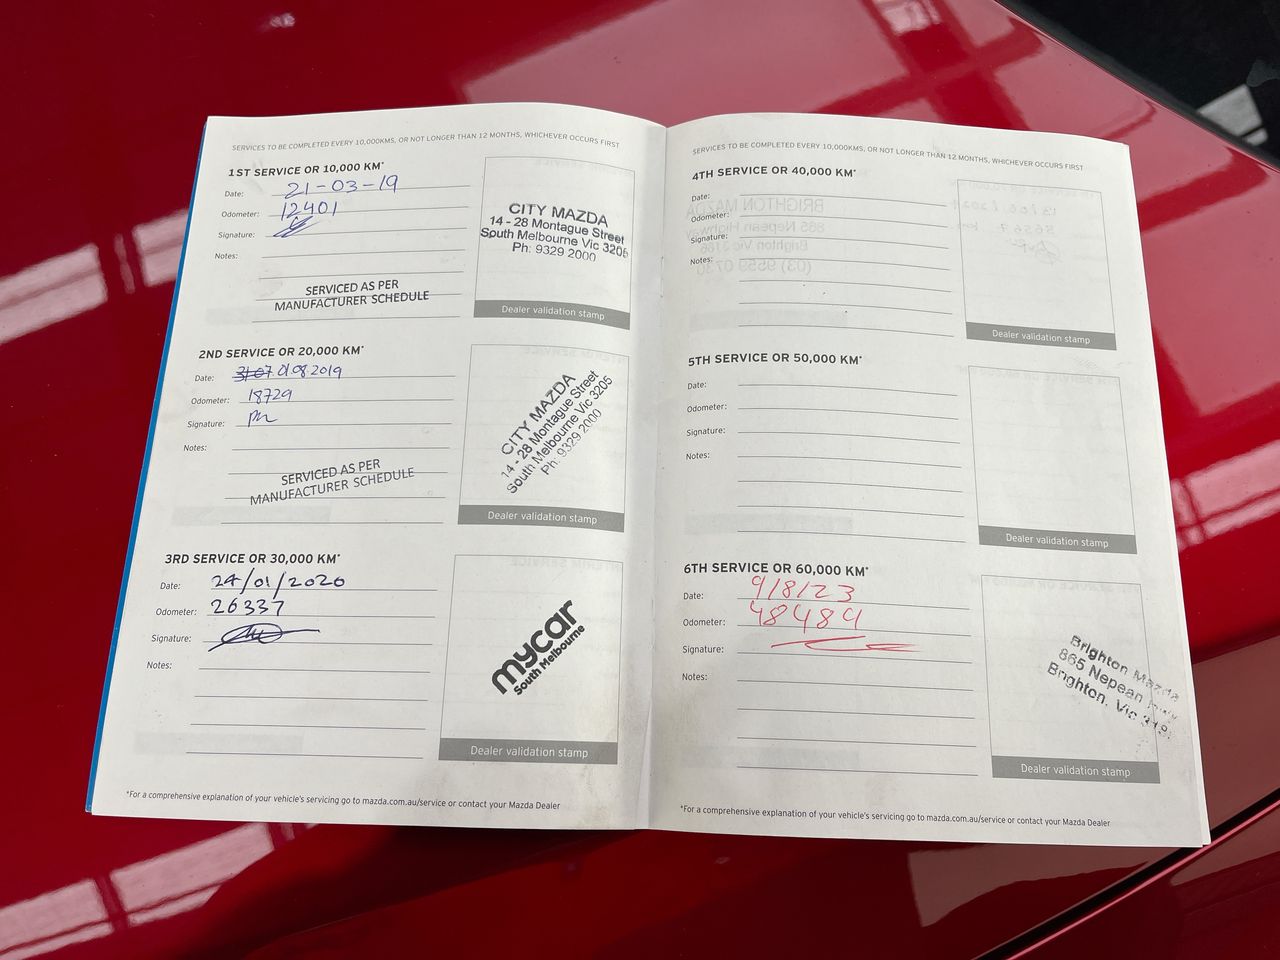 SERVICES TO BE COMPLETED EVERY 10,000KMS, OR NOT LONGER THAN 12 MONTHS, WHICHEVER OCCURS FIRST
1ST SERVICE OR 10,000 KM*
Date: 21-03-19
Odometer: 12401
Signature:
Notes:
SERVICED AS PER
MANUFACTURER SCHEDULE
CITY MAZDA
14 - 28 Montague Street
South Melbourne Vic 3205
Ph: 9329 2000
Dealer validation stamp
2ND SERVICE OR 20,000 KM*
Date: 31-07 01.08.2019
Odometer: 18729
Signature:
Notes:
SERVICED AS PER
MANUFACTURER SCHEDULE
CITY MAZDA
14 - 28 Montague Street
South Melbourne Vic 3205
Ph: 9329 2000
Dealer validation stamp
3RD SERVICE OR 30,000 KM*
Date: 24/01/2020
Odometer: 26337
Signature:
Notes:
mycar
South Melbourne
Dealer validation stamp
*For a comprehensive explanation of your vehicle's servicing go to mazda.com.au/service or contact your Mazda Dealer
SERVICES TO BE COMPLETED EVERY 10,000KMS, OR NOT LONGER THAN 12 MONTHS, WHICHEVER OCCURS FIRST
4TH SERVICE OR 40,000 KM*
Date:
Odometer:
Signature:
Notes:
Dealer validation stamp
5TH SERVICE OR 50,000 KM*
Date:
Odometer:
Signature:
Notes:
Dealer validation stamp
6TH SERVICE OR 60,000 KM*
Date: 9/8/23
Odometer: 48484
Signature:
Notes:
Brighton Mazda
865 Nepean Hwy
Brighton, Vic
Dealer validation stamp
*For a comprehensive explanation of your vehicle's servicing go to mazda.com.au/service or contact your Mazda Dealer